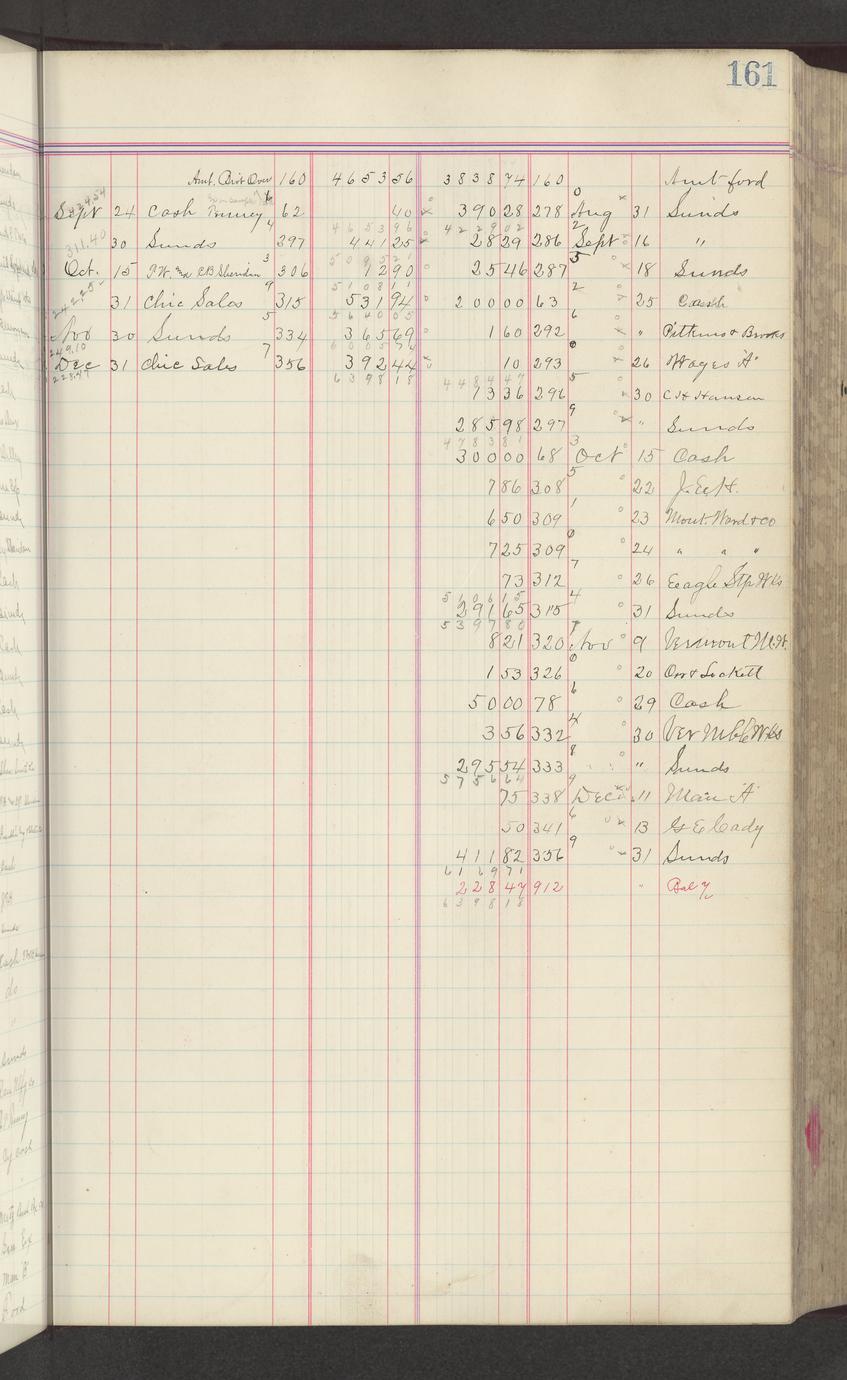 161
Amt. Brot Over 160 4653 56 3838 74 160 Amt ford
Sept 24 Cash Tunney 62 40 390 28 278 Aug 31 Sunds
4653 96 4229 02
30 Sunds 297 441 25 28 29 286 Sept 16 "
311.40 5095 21
Oct. 15 C.B. Sheridan 306 12 90 25 46 287 18 Sunds
5108 11
31 Chic Sales 315 531 94 200 00 63 25 Cash
5640 05
Nov 30 Sunds 334 365 69 1 60 292 " Pitkins & Brooks
249.10 6005 74
Dec 31 Chic Sales 356 392 44 10 293 26 Wages "A"
6398 18 4484 47
73 36 296 30 C H Hansen
285 98 297 " Sunds
4783 81
300 00 68 Oct 15 Cash
7 86 308 22
6 50 309 23 Mont. Ward & Co
7 25 309 24 " " "
73 312 26 Eagle Stp Wks
5106 15
291 65 315 31 Sunds
5397 80
8 21 320 Nov 9 Vermont M.W.
1 53 326 20 Orr & Lockett
50 00 78 29 Cash
3 56 332 30 Ver Mble Wks
295 54 333 " Sunds
5756 64
75 338 Dec 11 Main "A"
50 341 13 G E Cady
411 82 356 31 Sunds
6169 71
228 47 912 " Bal
6398 18